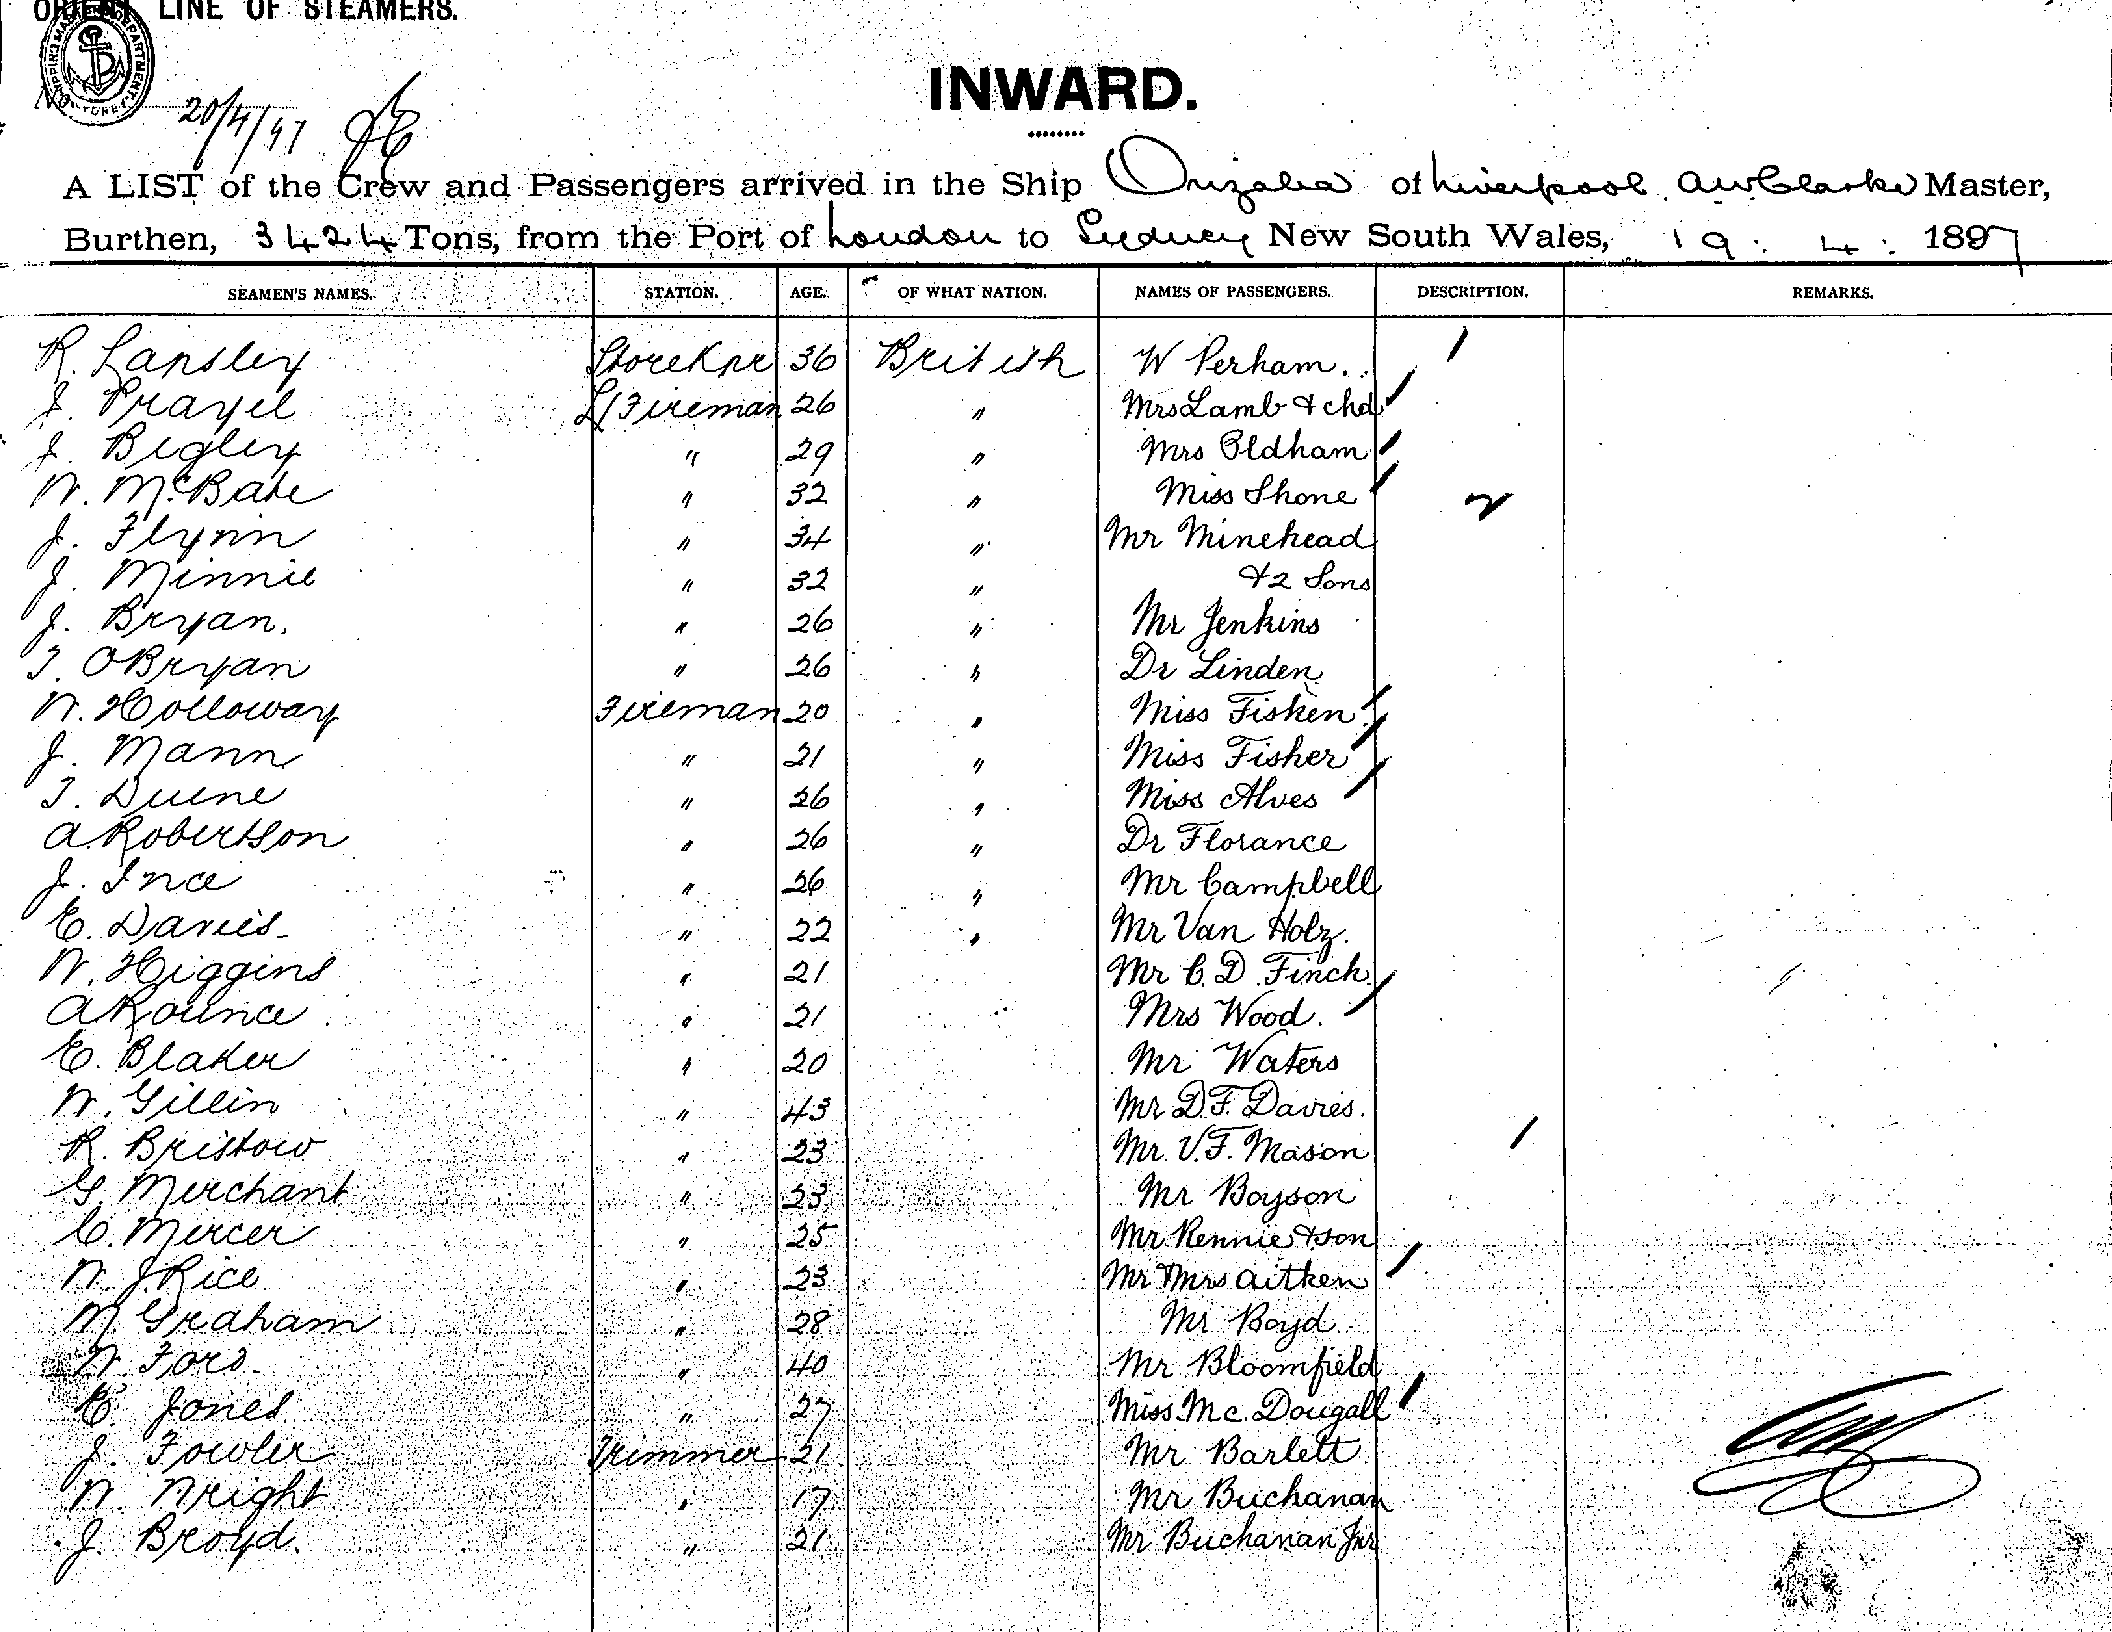 ORIENT LINE OF STEAMERS.
20/4/97
INWARD.
A LIST of the Crew and Passengers arrived in the Ship Orizaba of Liverpool A W Clarke Master,
Burthen, 3424 Tons, from the Port of London to Sydney New South Wales, 19 : 4 : 1897
SEAMEN'S NAMES. STATION. AGE. OF WHAT NATION. NAMES OF PASSENGERS. DESCRIPTION. REMARKS.
R. Lansley StoreKpr 36 British W Perham.
J. Prayel L/Fireman 26 " Mrs Lamb & chd
J. Begley " 29 " Mrs Oldham
W. McBate " 32 " Miss Shone
J. Flynn " 34 " Mr Minehead
J. Minnie " 32 " & 2 Sons
J. Bryan. " 26 " Mr Jenkins
T. OBryan " 26 " Dr Linden
W. Holloway Fireman 20 " Miss Fisken
J. Mann " 21 " Miss Fisher
T. Duene " 26 " Miss Alves
A. Robertson " 26 " Dr Florance
J. Ince " 26 " Mr Campbell
E. Davies " 22 " Mr Van Holz.
W. Higgins " 21 Mr C. D. Finch
A Rounce " 21 Mrs Wood.
E. Blaker " 20 Mr Waters
W. Gillin " 43 Mr D.F. Davies.
R. Bristow " 23 Mr. V.F. Mason
G. Merchant " 23 Mr Boyson
C. Mercer " 25 Mr Rennie & son
W. J. Rice " 23 Mr & Mrs Aitken
M. Graham " 28 Mr Boyd
W. Ford " 40 Mr Bloomfield
E. Jones " 27 Miss Mc. Dougall
J. Fowler Trimmer 21 Mr Barlett
W. Wright " 17 Mr Buchanan
J. Broyd. " 21 Mr Buchanan Jnr